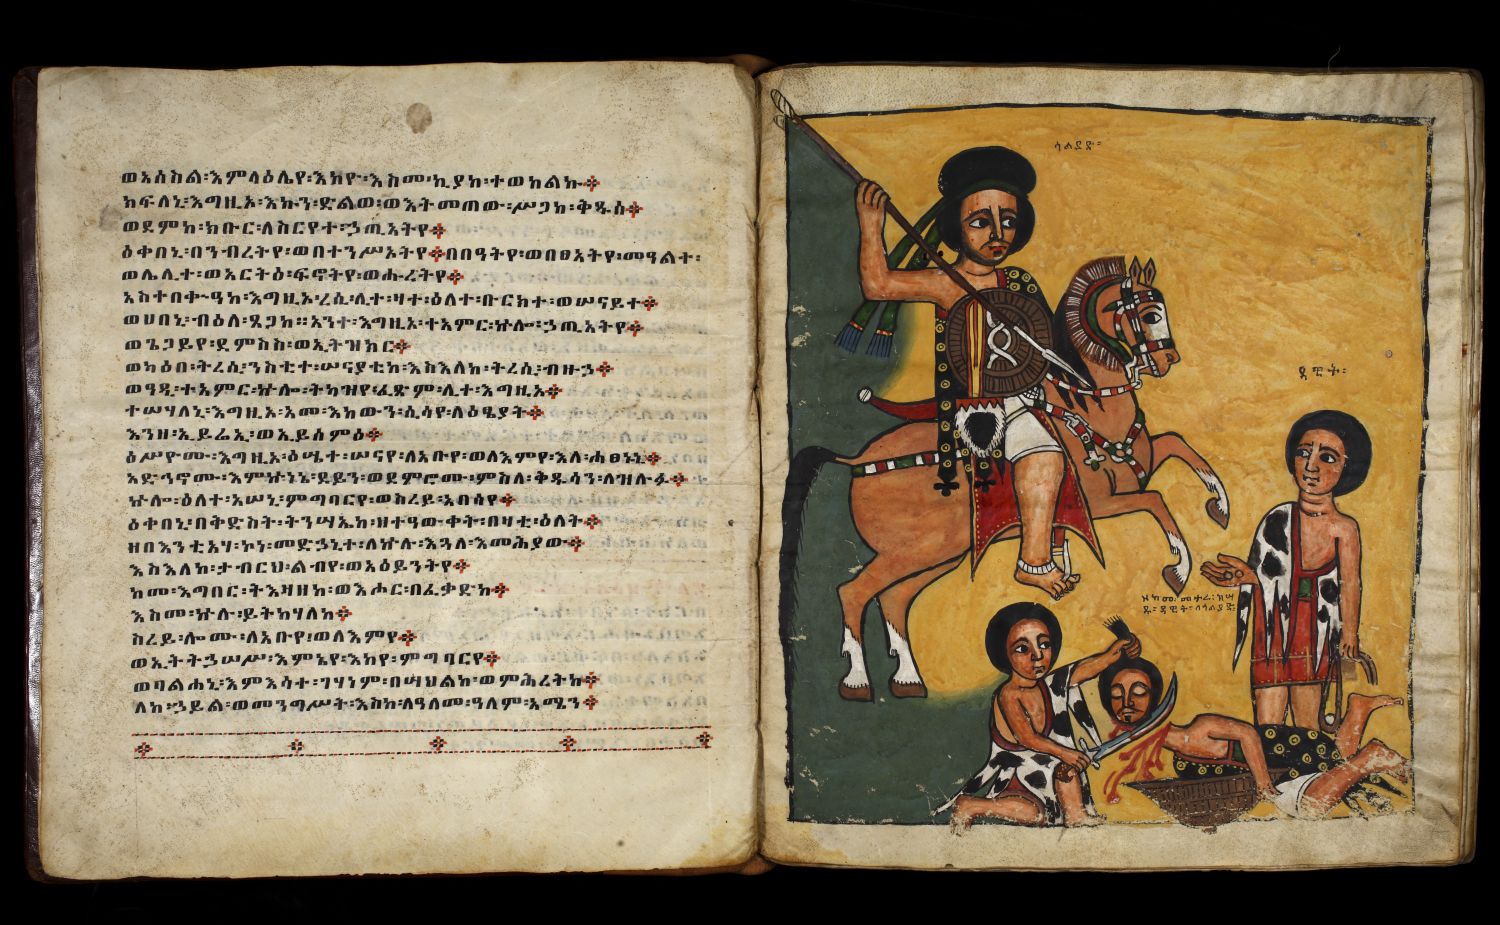 ወአሰስል፡እምላዕሌየ፡እከየ፡እስመ፡ኪያከ፡ተወከልኩ
ክፍለኒ፡እግዚኦ፡እኩን፡ድልወ፡ወእትመጠው፡ሥጋከ፡ቅዱሰ
ወደምከ፡ክቡር፡ለስርየተ፡ኃጢአትየ
ዕቀበኒ፡በንብረትየ፡ወበተንሥኦትየ በበዓትየ፡ወበፀአትየ፡መዓልተ፡
ወሌሊተ፡ወአርትዕ፡ፍኖትየ፡ወሑረትየ
አስተበቍዓከ፡እግዚኦ፡ረሲ፡ሊተ፡ዛተ፡ዕለተ፡ቡርክተ፡ወሠናይተ
ወሀበኒ፡ብዕለ፡ጸጋከ። አንተ፡እግዚኦ፡ተአምር፡ኵሎ፡ኃጢአትየ
ወጌጋይየ፡ደምስስ፡ወኢትዝክር
ወካዕበ፡ትረሲ፡ንስቲተ፡ሠናያቲከ፡እስእለከ፡ትረሲ፡ብዙኃ
ወዓዲ፡ተአምር፡ኵሎ፡ትካዝየ ፈጽም፡ሊተ፡እግዚኦ
ተሠሃለኒ፡እግዚኦ፡አመ፡እከውን፡ሲሳየ፡ለዕፄያት
እንዘ፡ኢይሬኢ፡ወኢይሰምዕ
ዕሥዮሙ፡እግዚኦ፡ዕሤተ፡ሠናየ፡ለአቡየ፡ወለእምየ፡እለ፡ሐፀነኒ
አድኅኖሙ፡እምኵነኔ፡ደይን፡ወደምሮሙ፡ምስለ፡ቅዱሳን፡ለዝሉፉ
ኵሎ፡ዕለተ፡አሠኒ፡ምግባርየ፡ወስረይ፡አበሳየ
ዕቀበኒ፡በቅድስት፡ትንሣኤከ፡ዘተዓውቀት፡በዛቲ፡ዕለት
ዘበእንቲአሃ፡ኮነ፡መድኃኒተ፡ለኵሉ፡እጓለ፡እመሕያው
እስእለከ፡ታብርህ፡ልብየ፡ወአዕይንትየ
ከመ፡እግበር፡ትእዛዘከ፡ወእሖር፡በፈቃድከ
እስመ፡ኵሉ፡ይትከሃለከ
ስረይ፡ሎሙ፡ለአቡየ፡ወለእምየ
ወኢትትኃሠሥ፡እምኔየ፡እከየ፡ምግባርየ
ወባልሐኒ፡እምእሳተ፡ገሃነም፡በሣህልከ፡ወምሕረትከ
ለከ፡ኃይል፡ወመንግሥት፡እስከ፡ለዓለመ፡ዓለም፡አሜን
ጎልያድ፡
ዳዊት፡
ዘከመ፡መተረ፡ክሣ
ዱ፡ዳዊት፡ለጎልያድ